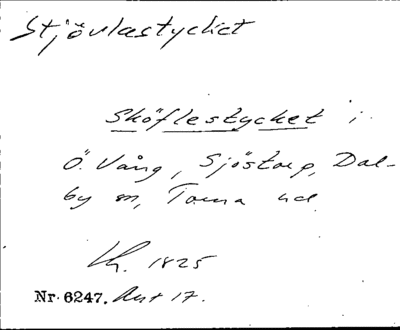 Stjövlastycket
Sköflestycket i
Ö. Vång, Sjöstorp, Dal-
by sn, Torna hd
Lh. 1825
Nr. 6247. Akt 17.